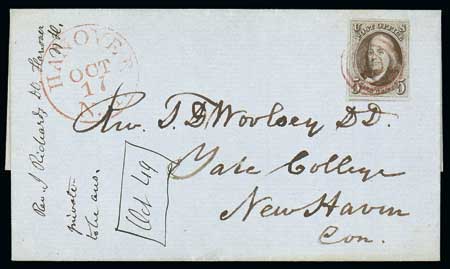 HANOVER
OCT
17
N.H.
POST OFFICE
5 5
Rev. T. D. Woolsey D.D.
Yale College
New Haven
Con.
Oct 49
Rev. J Richards D. Hanover
N.H.
private
to be ans.